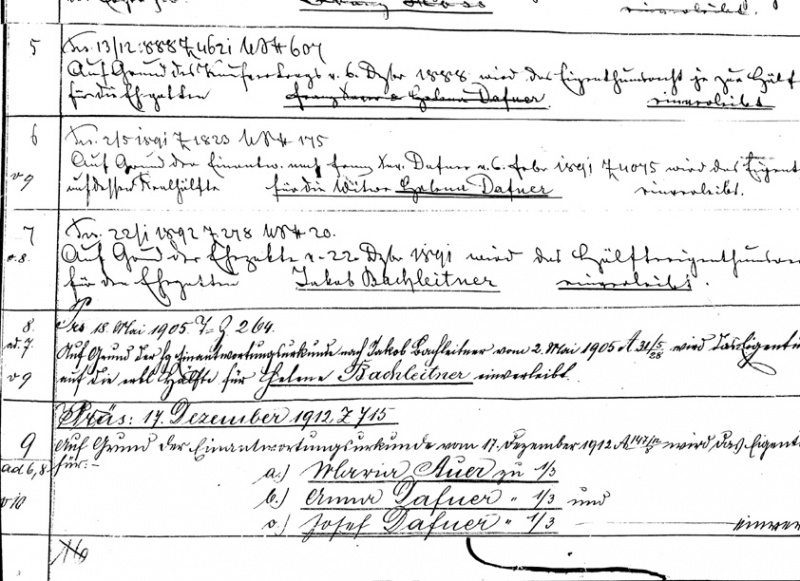 einverleibt.
5
Pr. 13/12 1888 Z 4621 607
Auf Grund des Kaufvertrags v. 6. Dzbr 1888 wird das Eigenthumsrecht je zur Hälf
für die Ehegatten Franz Xaver & Helena Dafner einverleibt
6
Pr. 2/5 1891 Z 1823 175
Auf Grund der Einantw. nach Franz Xav. Dafner v. 6. Febr 1891 Z 4075 wird das Eigent
v 9
auf dessen Realhälfte für die Witwe Helena Dafner einverleibt.
7
Pr. 22/1 1892 Z 278 20.
v. 8.
Auf Grund der Ehepakte v. 22. Dzbr 1891 wird das Hälfteeigenthumsre
für den Ehegatten Jakob Bachleitner einverleibt.
8.
Prs 18. Mai 1905 T. Z 264.
ad. 7.
Auf Grund der Einantwortungsurkunde nach Jakob Bachleitner vom 2. Mai 1905 A 31/5/28 wird das Eigent
v 9
auf die Hälfte für Helene Bachleitner einverleibt.
Präs: 17. Dezember 1912 Z 715
9
Auf Grund der Einantwortungsurkunde vom 17. Dezember 1912 A wird das Eigent
ad 6, 8
für:-
a.) Maria Auer zu 1/3
v 10
b.) Anna Dafner " 1/3 und
c.) Josef Dafner " 1/3 einver